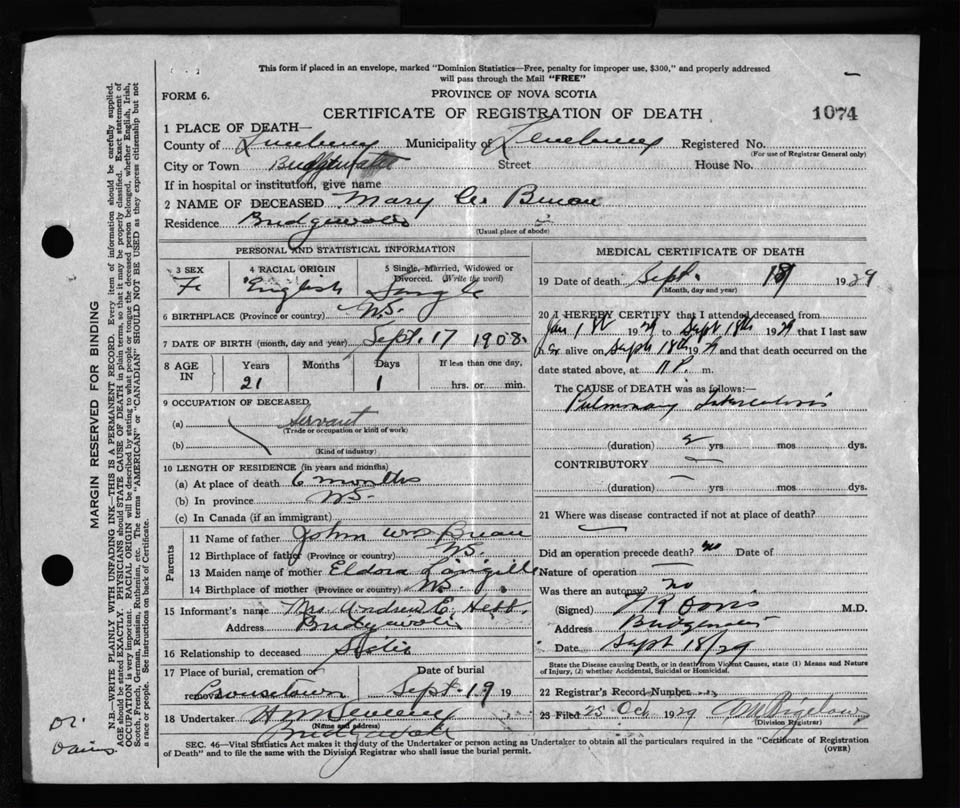 This form if placed in an envelope, marked "Dominion Statistics—Free, penalty for improper use, $300," and properly addressed
will pass through the Mail "FREE"
FORM 6.
PROVINCE OF NOVA SCOTIA
CERTIFICATE OF REGISTRATION OF DEATH
1074
1 PLACE OF DEATH—
County of Lunenburg Municipality of Lunenburg Registered No.
(For use of Registrar General only)
City or Town Bridgewater Street House No.
If in hospital or institution, give name
2 NAME OF DECEASED Mary
Residence Bridgewater
(Usual place of abode)
PERSONAL AND STATISTICAL INFORMATION
3 SEX 4 RACIAL ORIGIN 5 Single, Married, Widowed or
Divorced. (Write the word)
Fe English Single
6 BIRTHPLACE (Province or country) N.S.
7 DATE OF BIRTH (month, day and year) Sept. 17 1908
8 AGE IN Years Months Days If less than one day,
21 1 hrs. or min.
9 OCCUPATION OF DECEASED,
(a) Servant
(Trade or occupation or kind of work)
(b)
(Kind of industry)
10 LENGTH OF RESIDENCE (in years and months)
(a) At place of death 6 months
(b) In province N.S.
(c) In Canada (if an immigrant)
Parents
11 Name of father John Wm
12 Birthplace of father (Province or country) N.S.
13 Maiden name of mother Eldora Langille
14 Birthplace of mother (Province or country) N.S.
15 Informant's name Mrs. Andrew E. Hebb
Address Bridgewater
16 Relationship to deceased Sister
17 Place of burial, cremation or Date of burial
removal Sept. 19 19
18 Undertaker
(Name and address)
Bridgewater
MEDICAL CERTIFICATE OF DEATH
19 Date of death Sept. 18 1929
(Month, day and year)
20 I HEREBY CERTIFY that I attended deceased from
Jan 1st 1929 to Sept 18th 1929 that I last saw
her alive on Sept 18th 1929 and that death occurred on the
date stated above, at 11 P. m.
The CAUSE of DEATH was as follows:—
Pulmonary Tuberculosis
(duration) 2 yrs mos dys.
CONTRIBUTORY —
(duration) — yrs mos dys.
21 Where was disease contracted if not at place of death?
Did an operation precede death? no Date of
Nature of operation —
Was there an autopsy? no
(Signed) M.D.
Address Bridgewater
Date Sept 18/29
State the Disease causing Death, or in death from Violent Causes, state (1) Means and Nature
of Injury, (2) whether Accidental, Suicidal or Homicidal.
22 Registrar's Record Number
23 Filed 23 Oct 1929 Bigelow
(Division Registrar)
SEC. 46—Vital Statistics Act makes it the duty of the Undertaker or person acting as Undertaker to obtain all the particulars required in the "Certificate of Registration
of Death" and to file the same with the Division Registrar who shall issue the burial permit.
(OVER)
MARGIN RESERVED FOR BINDING
N.B.—WRITE PLAINLY WITH UNFADING INK—THIS IS A PERMANENT RECORD. Every item of information should be carefully supplied.
AGE should be stated EXACTLY. PHYSICIANS should STATE CAUSE OF DEATH in plain terms, so that it may be properly classified. Exact statement of
OCCUPATION is very important. RACIAL ORIGIN will be described by stating to what people or tongue the deceased person belonged, whether English, Irish,
Scotch, French, German, Russian, Ruthenian, etc. The terms "AMERICAN" or "CANADIAN" SHOULD NOT BE USED as they express citizenship but not
a race or people. See instructions on back of Certificate.